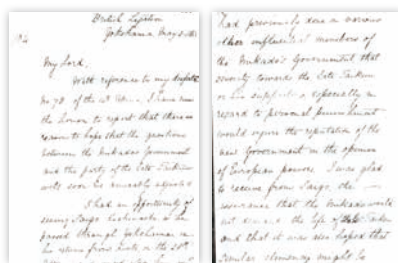 British Legation
Yokohama May
My Lord,
With reference to my despatch
No 78 of the , I have now
the honor to report that there is
reason to hope that the questions
between the Mikado's Government
and the party of the late Taikun
will soon be amicably
I had an opportunity of
seeing as he
passed through Yokohama on
his return from on the
had previously done in various
other influential members of
the Mikado's Government that
severity towards the late Taikun
or his supporters especially in
regard to personal punishment
would injure the reputation of the
new Government in the opinion
of European powers. I was glad
to receive from Saigo, the
assurance that the Mikado would
not the life of Taikun
and that it was also hoped that
similar clemency might be